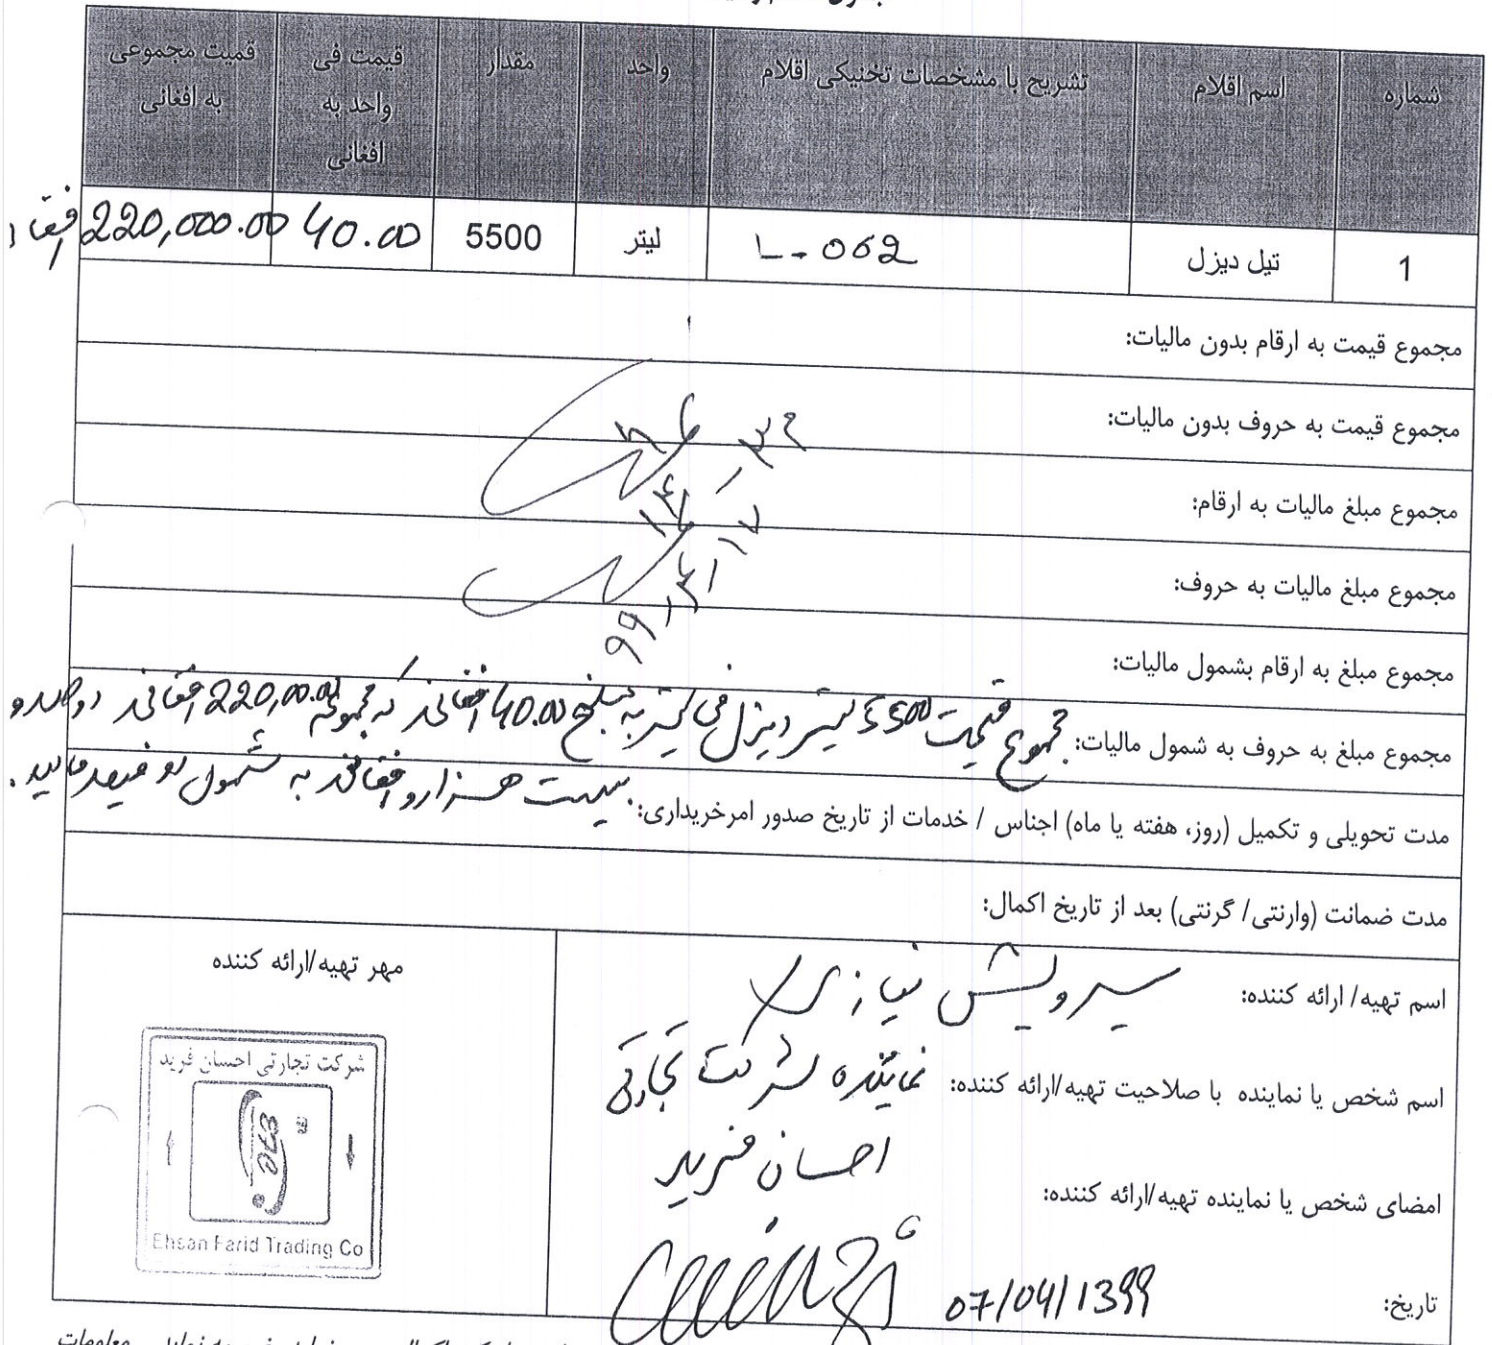 شماره	اسم اقلام	تشریح با مشخصات تخنیکی اقلام	واحد	مقدار	قیمت فی واحد به افغانی	قمیت مجموعی به افغانی
1	تیل دیزل	L-062	لیتر	5500	40.00	220,000.00
مجموع قیمت به ارقام بدون مالیات:
مجموع قیمت به حروف بدون مالیات:
مجموع مبلغ مالیات به ارقام:
مجموع مبلغ مالیات به حروف:
مجموع مبلغ به ارقام بشمول مالیات:
مجموع مبلغ به حروف به شمول مالیات: مجموع قیمت 5500 لیتر دیزل فی لیتر به مبلغ 40.00 افغانی که مجموعه 220,000.00 افغانی دوصد و
بیست هزار افغانی به شمول دو فیصد مالیه.
مدت تحویلی و تکمیل (روز، هفته یا ماه) اجناس / خدمات از تاریخ صدور امرخریداری:
مدت ضمانت (وارنتی/ گرنتی) بعد از تاریخ اکمال:
اسم تهیه/ ارائه کننده: نیازی
اسم شخص یا نماینده با صلاحیت تهیه/ارائه کننده: نماینده شرکت تجارتی
احسان فرید
امضای شخص یا نماینده تهیه/ارائه کننده:
تاریخ: 07/04/1399
مهر تهیه/ارائه کننده
شرکت تجارتی احسان فرید
Ehsan Farid Trading Co